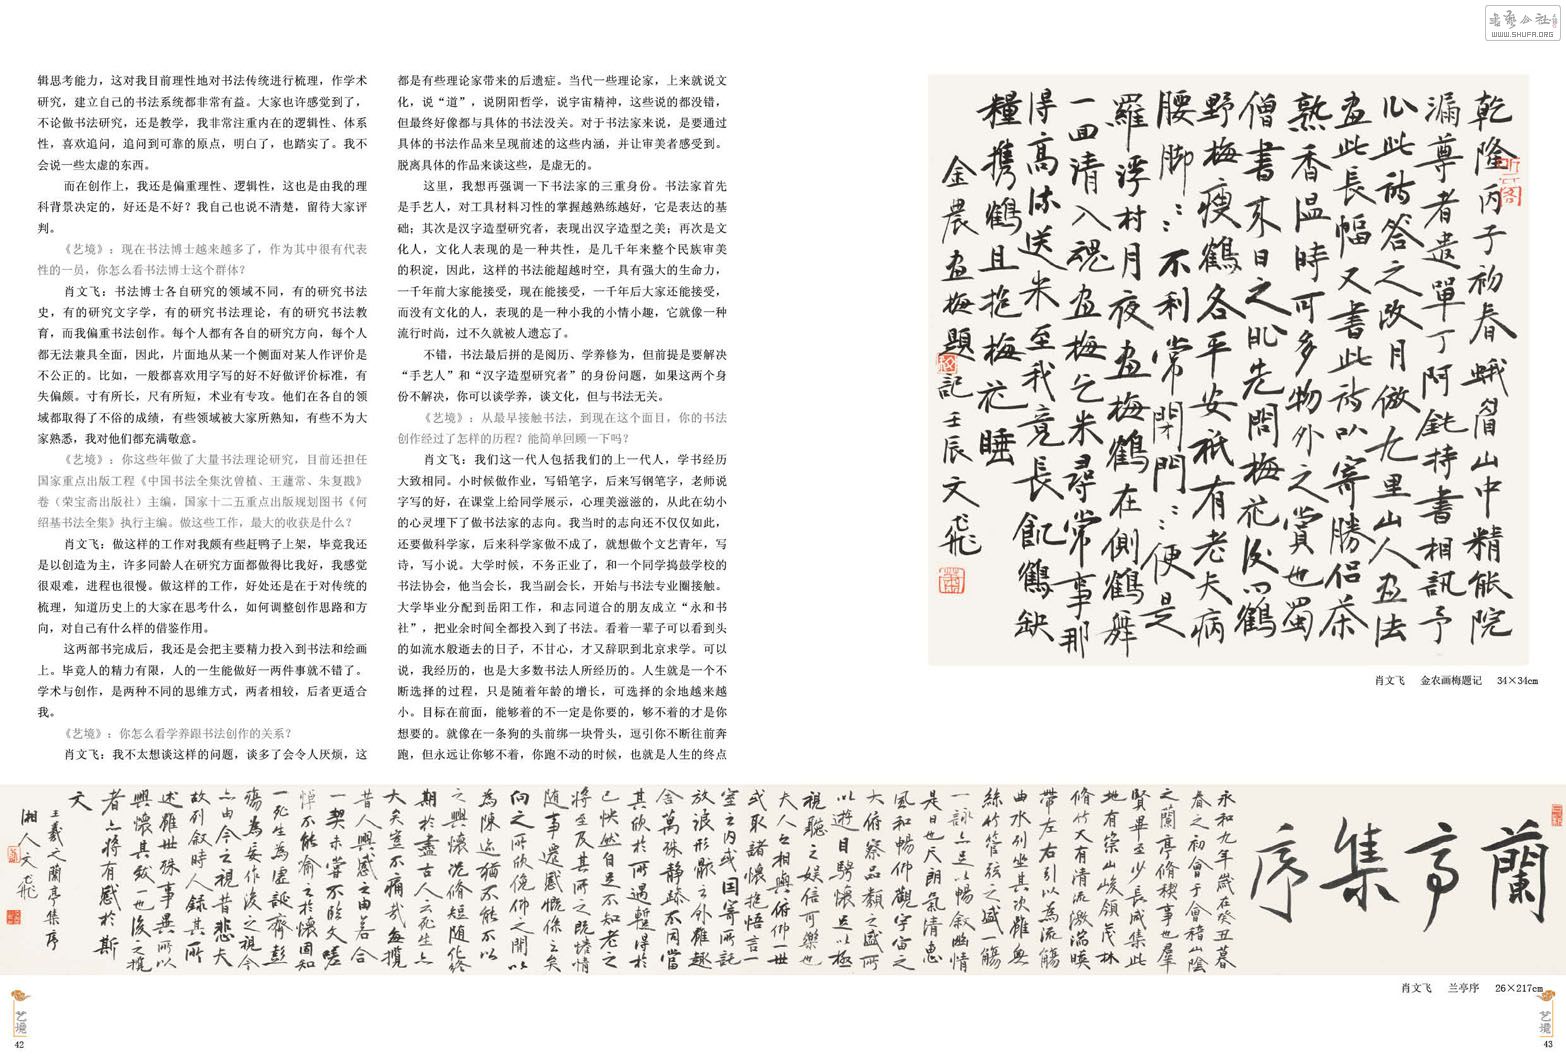 書藝公社
WWW.SHUFA.ORG
辑思考能力，这对我目前理性地对书法传统进行梳理，作学术
研究，建立自己的书法系统都非常有益。大家也许感觉到了，
不论做书法研究，还是教学，我非常注重内在的逻辑性、体系
性，喜欢追问，追问到可靠的原点，明白了，也踏实了。我不
会说一些太虚的东西。
而在创作上，我还是偏重理性、逻辑性，这也是由我的理
科背景决定的，好还是不好？我自己也说不清楚，留待大家评
判。
《艺境》：现在书法博士越来越多了，作为其中很有代表
性的一员，你怎么看书法博士这个群体？
肖文飞：书法博士各自研究的领域不同，有的研究书法
史，有的研究文字学，有的研究书法理论，有的研究书法教
育，而我偏重书法创作。每个人都有各自的研究方向，每个人
都无法兼具全面，因此，片面地从某一个侧面对某人作评价是
不公正的。比如，一般都喜欢用字写的好不好做评价标准，有
失偏颇。寸有所长，尺有所短，术业有专攻。他们在各自的领
域都取得了不俗的成绩，有些领域被大家所熟知，有些不为大
家熟悉，我对他们都充满敬意。
《艺境》：你这些年做了大量书法理论研究，目前还担任
国家重点出版工程《中国书法全集沈曾植、王蘧常、朱复戡》
卷（荣宝斋出版社）主编，国家十二五重点出版规划图书《何
绍基书法全集》执行主编。做这些工作，最大的收获是什么？
肖文飞：做这样的工作对我颇有些赶鸭子上架，毕竟我还
是以创造为主，许多同龄人在研究方面都做得比我好，我感觉
很艰难，进程也很慢。做这样的工作，好处还是在于对传统的
梳理，知道历史上的大家在思考什么，如何调整创作思路和方
向，对自己有什么样的借鉴作用。
这两部书完成后，我还是会把主要精力投入到书法和绘画
上。毕竟人的精力有限，人的一生能做好一两件事就不错了。
学术与创作，是两种不同的思维方式，两者相较，后者更适合
我。
《艺境》：你怎么看学养跟书法创作的关系？
肖文飞：我不太想谈这样的问题，谈多了会令人厌烦，这
都是有些理论家带来的后遗症。当代一些理论家，上来就说文
化，说“道”，说阴阳哲学，说宇宙精神，这些说的都没错，
但最终好像都与具体的书法没关。对于书法家来说，是要通过
具体的书法作品来呈现前述的这些内涵，并让审美者感受到。
脱离具体的作品来谈这些，是虚无的。
这里，我想再强调一下书法家的三重身份。书法家首先
是手艺人，对工具材料习性的掌握越熟练越好，它是表达的基
础；其次是汉字造型研究者，表现出汉字造型之美；再次是文
化人，文化人表现的是一种共性，是几千年来整个民族审美
的积淀，因此，这样的书法能超越时空，具有强大的生命力，
一千年前大家能接受，现在能接受，一千年后大家还能接受，
而没有文化的人，表现的是一种小我的小情小趣，它就像一种
流行时尚，过不久就被人遗忘了。
不错，书法最后拼的是阅历、学养修为，但前提是要解决
“手艺人”和“汉字造型研究者”的身份问题，如果这两个身
份不解决，你可以谈学养，谈文化，但与书法无关。
《艺境》：从最早接触书法，到现在这个面目，你的书法
创作经过了怎样的历程？能简单回顾一下吗？
肖文飞：我们这一代人包括我们的上一代人，学书经历
大致相同。小时候做作业，写铅笔字，后来写钢笔字，老师说
字写的好，在课堂上给同学展示，心理美滋滋的，从此在幼小
的心灵埋下了做书法家的志向。我当时的志向还不仅仅如此，
还要做科学家，后来科学家做不成了，就想做个文艺青年，写
诗，写小说。大学时候，不务正业了，和一个同学捣鼓学校的
书法协会，他当会长，我当副会长，开始与书法专业圈接触。
大学毕业分配到岳阳工作，和志同道合的朋友成立“永和书
社”，把业余时间全都投入到了书法。看着一辈子可以看到头
的如流水般逝去的日子，不甘心，才又辞职到北京求学。可以
说，我经历的，也是大多数书法人所经历的。人生就是一个不
断选择的过程，只是随着年龄的增长，可选择的余地越来越
小。目标在前面，能够着的不一定是你要的，够不着的才是你
想要的。就像在一条狗的头前绑一块骨头，逗引你不断往前奔
跑，但永远让你够不着，你跑不动的时候，也就是人生的终点
乾隆丙子初春蛾眉山中精能院
漏尊者遣單丁阿銑持書相訊予
以此詩答之改月倣九里山人画法
画此長幅又書此詩以寄勝侶茶
熟香温時可多物外之賞也蜀
僧書來日之昳先問梅花後問鶴
野梅瘦鶴各平安衹有老夫病
腰脚::不利常閉門::便是
羅浮村月夜画梅鶴在側鶴舞
一回清人魂画梅乞米尋常事那
得高流送米至我竟長飢鶴缺
糧攜鶴且抱梅花睡
金農画梅題記壬辰文飛
肖文飞 金农画梅题记 34×34cm
蘭亭集序
永和九年歲在癸丑暮
春之初會于會稽山陰
之蘭亭脩稧事也羣
賢畢至少長咸集此
地有崇山峻領茂林
脩竹又有清流激湍暎
帶左右引以為流觴
曲水列坐其次雖無
絲竹管弦之盛一觴
一詠亦足以暢敘幽情
是日也天朗氣清惠
風和暢仰觀宇宙之
大俯察品類之盛所
以遊目騁懷足以極
視聽之娛信可樂也
夫人之相與俯仰一世
或取諸懷抱悟言一
室之內或因寄所託
放浪形骸之外雖趣
舍萬殊靜躁不同當
其欣於所遇蹔得於
己怏然自足不知老之
將至及其所之既惓情
隨事遷感慨係之矣
向之所欣俛仰之間以
為陳迹猶不能不以
之興懷況脩短隨化終
期於盡古人云死生亦
大矣豈不痛哉每攬
昔人興感之由若合
一契未嘗不臨文嗟
悼不能喻之於懷固知
一死生為虛誕齊彭
殤為妄作後之視今
亦由今之視昔悲夫
故列敘時人錄其所
述雖世殊事異所以
興懷其致一也後之攬
者亦將有感於斯
文
王羲之蘭亭集序
湘人文飛
肖文飞 兰亭序 26×217cm
艺境
42
艺境
43